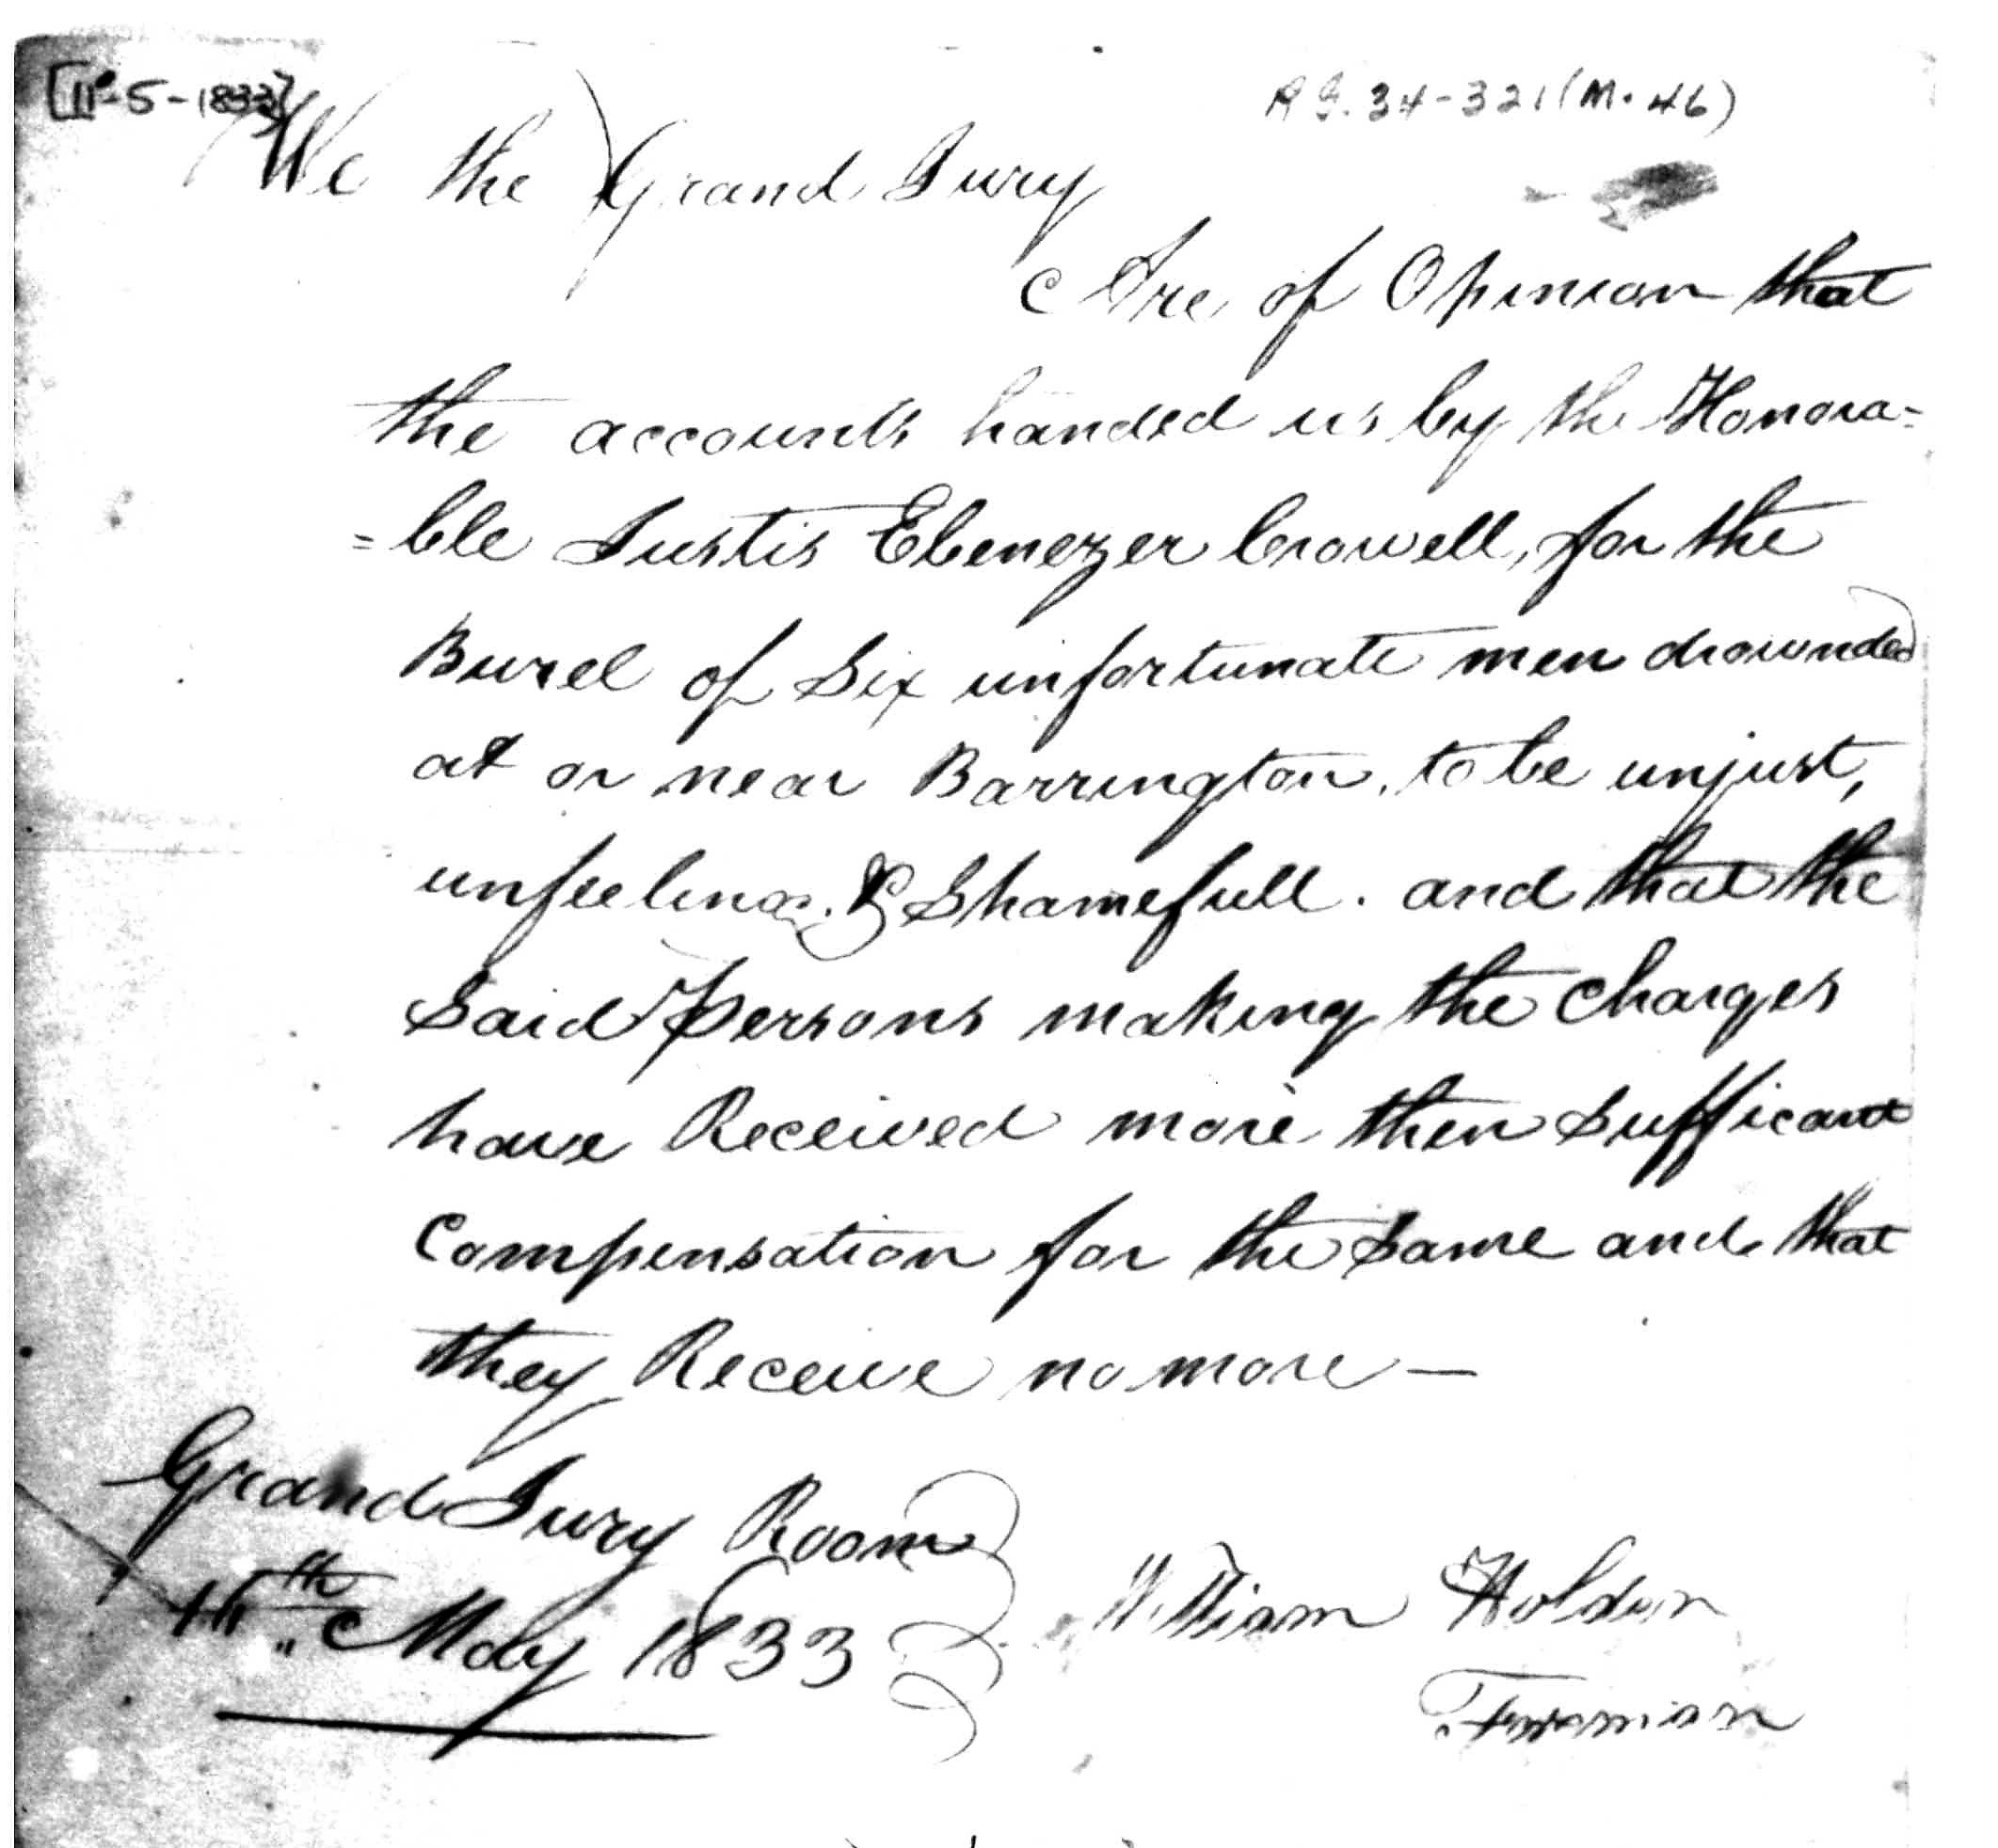 [11-5-1833]
R G. 34-321 (M. 46)
We the Grand Jury
Are of Opinion that
the accounts handed us by the Honora=
=ble Justis Ebenezer Crowell, for the
Burel of Six unfortunate men drownded
at or near Barrington, to be unjust,
unfeeling. & Shamefull. and that the
Said Persons making the Charges
have Received more then Sufficant
Compensation for the Same and that
they Receive no more —
Grand Jury Room
May 1833
William Holden
Foreman